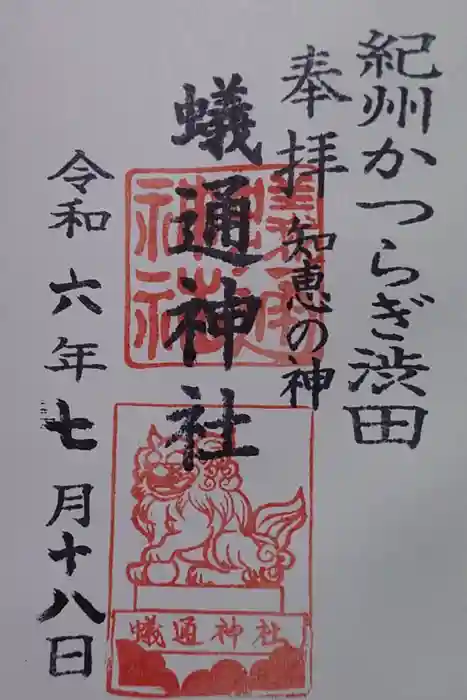 紀州かつらぎ渋田
奉拝
知恵の神
蟻通神社
蟻通神社
蟻通神社
令和六年七月十八日